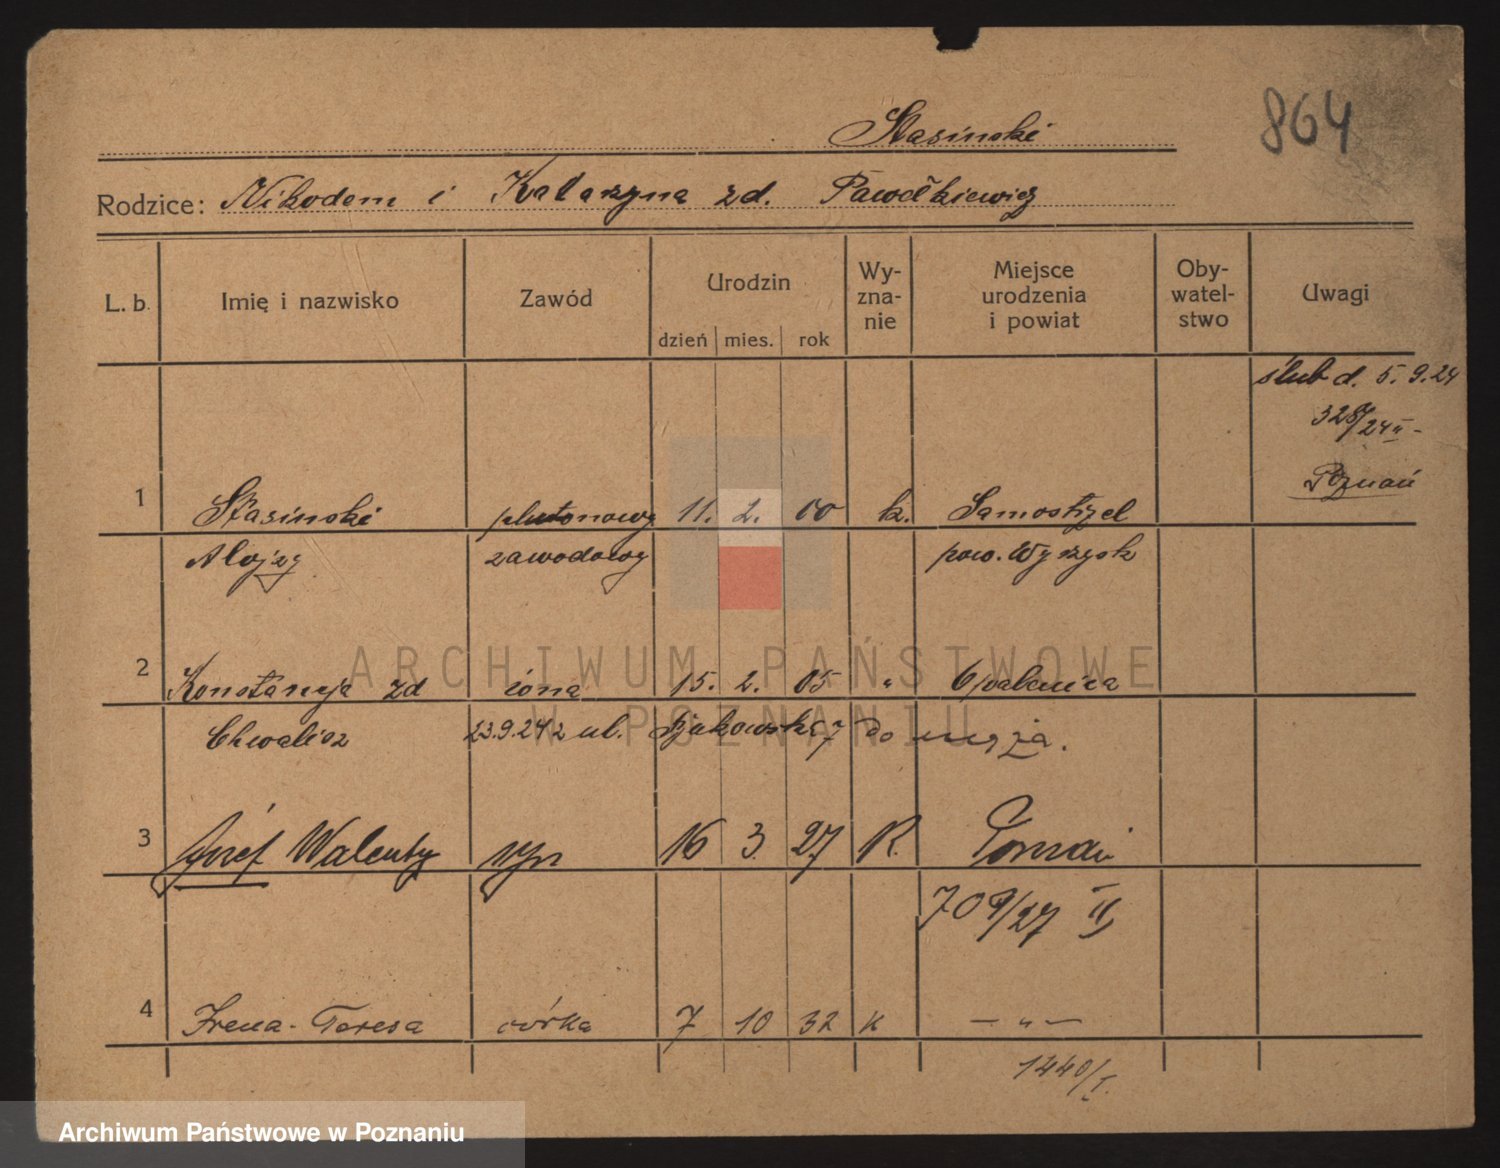 864
Stasinski
Rodzice: Nikodem i Katarzyna zd. Pawełkiewicz
L. b. Imię i nazwisko Zawód Urodzin dzień mies. rok Wy-zna-nie Miejsce urodzenia i powiat Oby-watel-stwo Uwagi
ślub d. 5.9.24
328/24 II -
Poznań
1 Stasinski plutonowy 11. 2. 00 k. Samostrzel
Alojzy zawodowy pow. Wyrzysk
2 Konstancja zd żona 15. 2. 05 " Opalenica
Chwalisz 23.9.24 z ul. 7 do męża.
3 Józef Walenty syn 16 3. 27 R. Poznań
709/27 II
4 Irena-Teresa córka 7 10 32 k — " —
1440/I.
ARCHIWUM PAŃSTWOWE
W POZNANIU
Archiwum Państwowe w Poznaniu